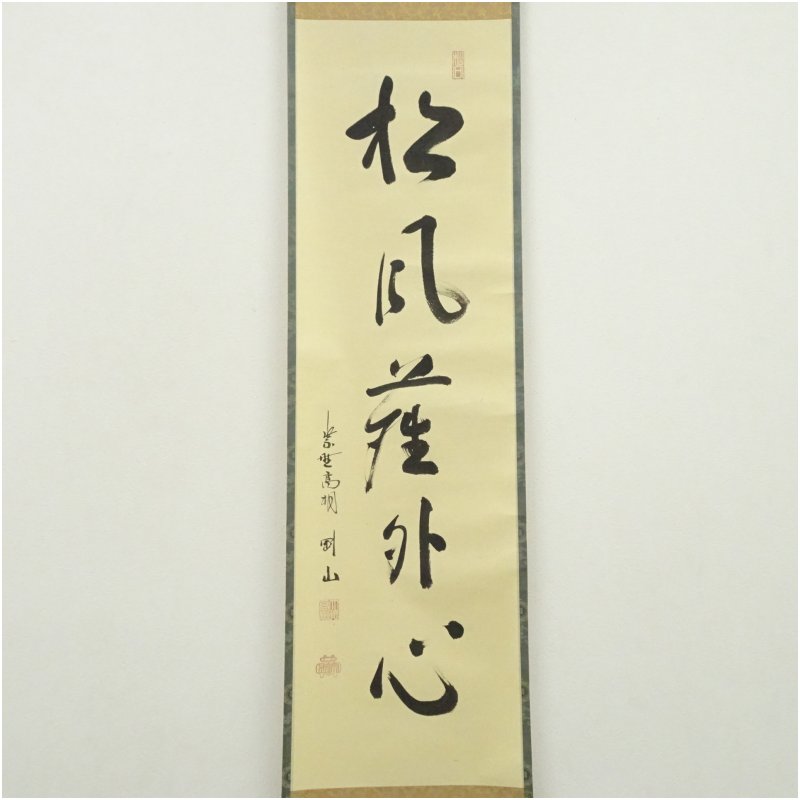 松風塵外心
紫野高桐 剛山